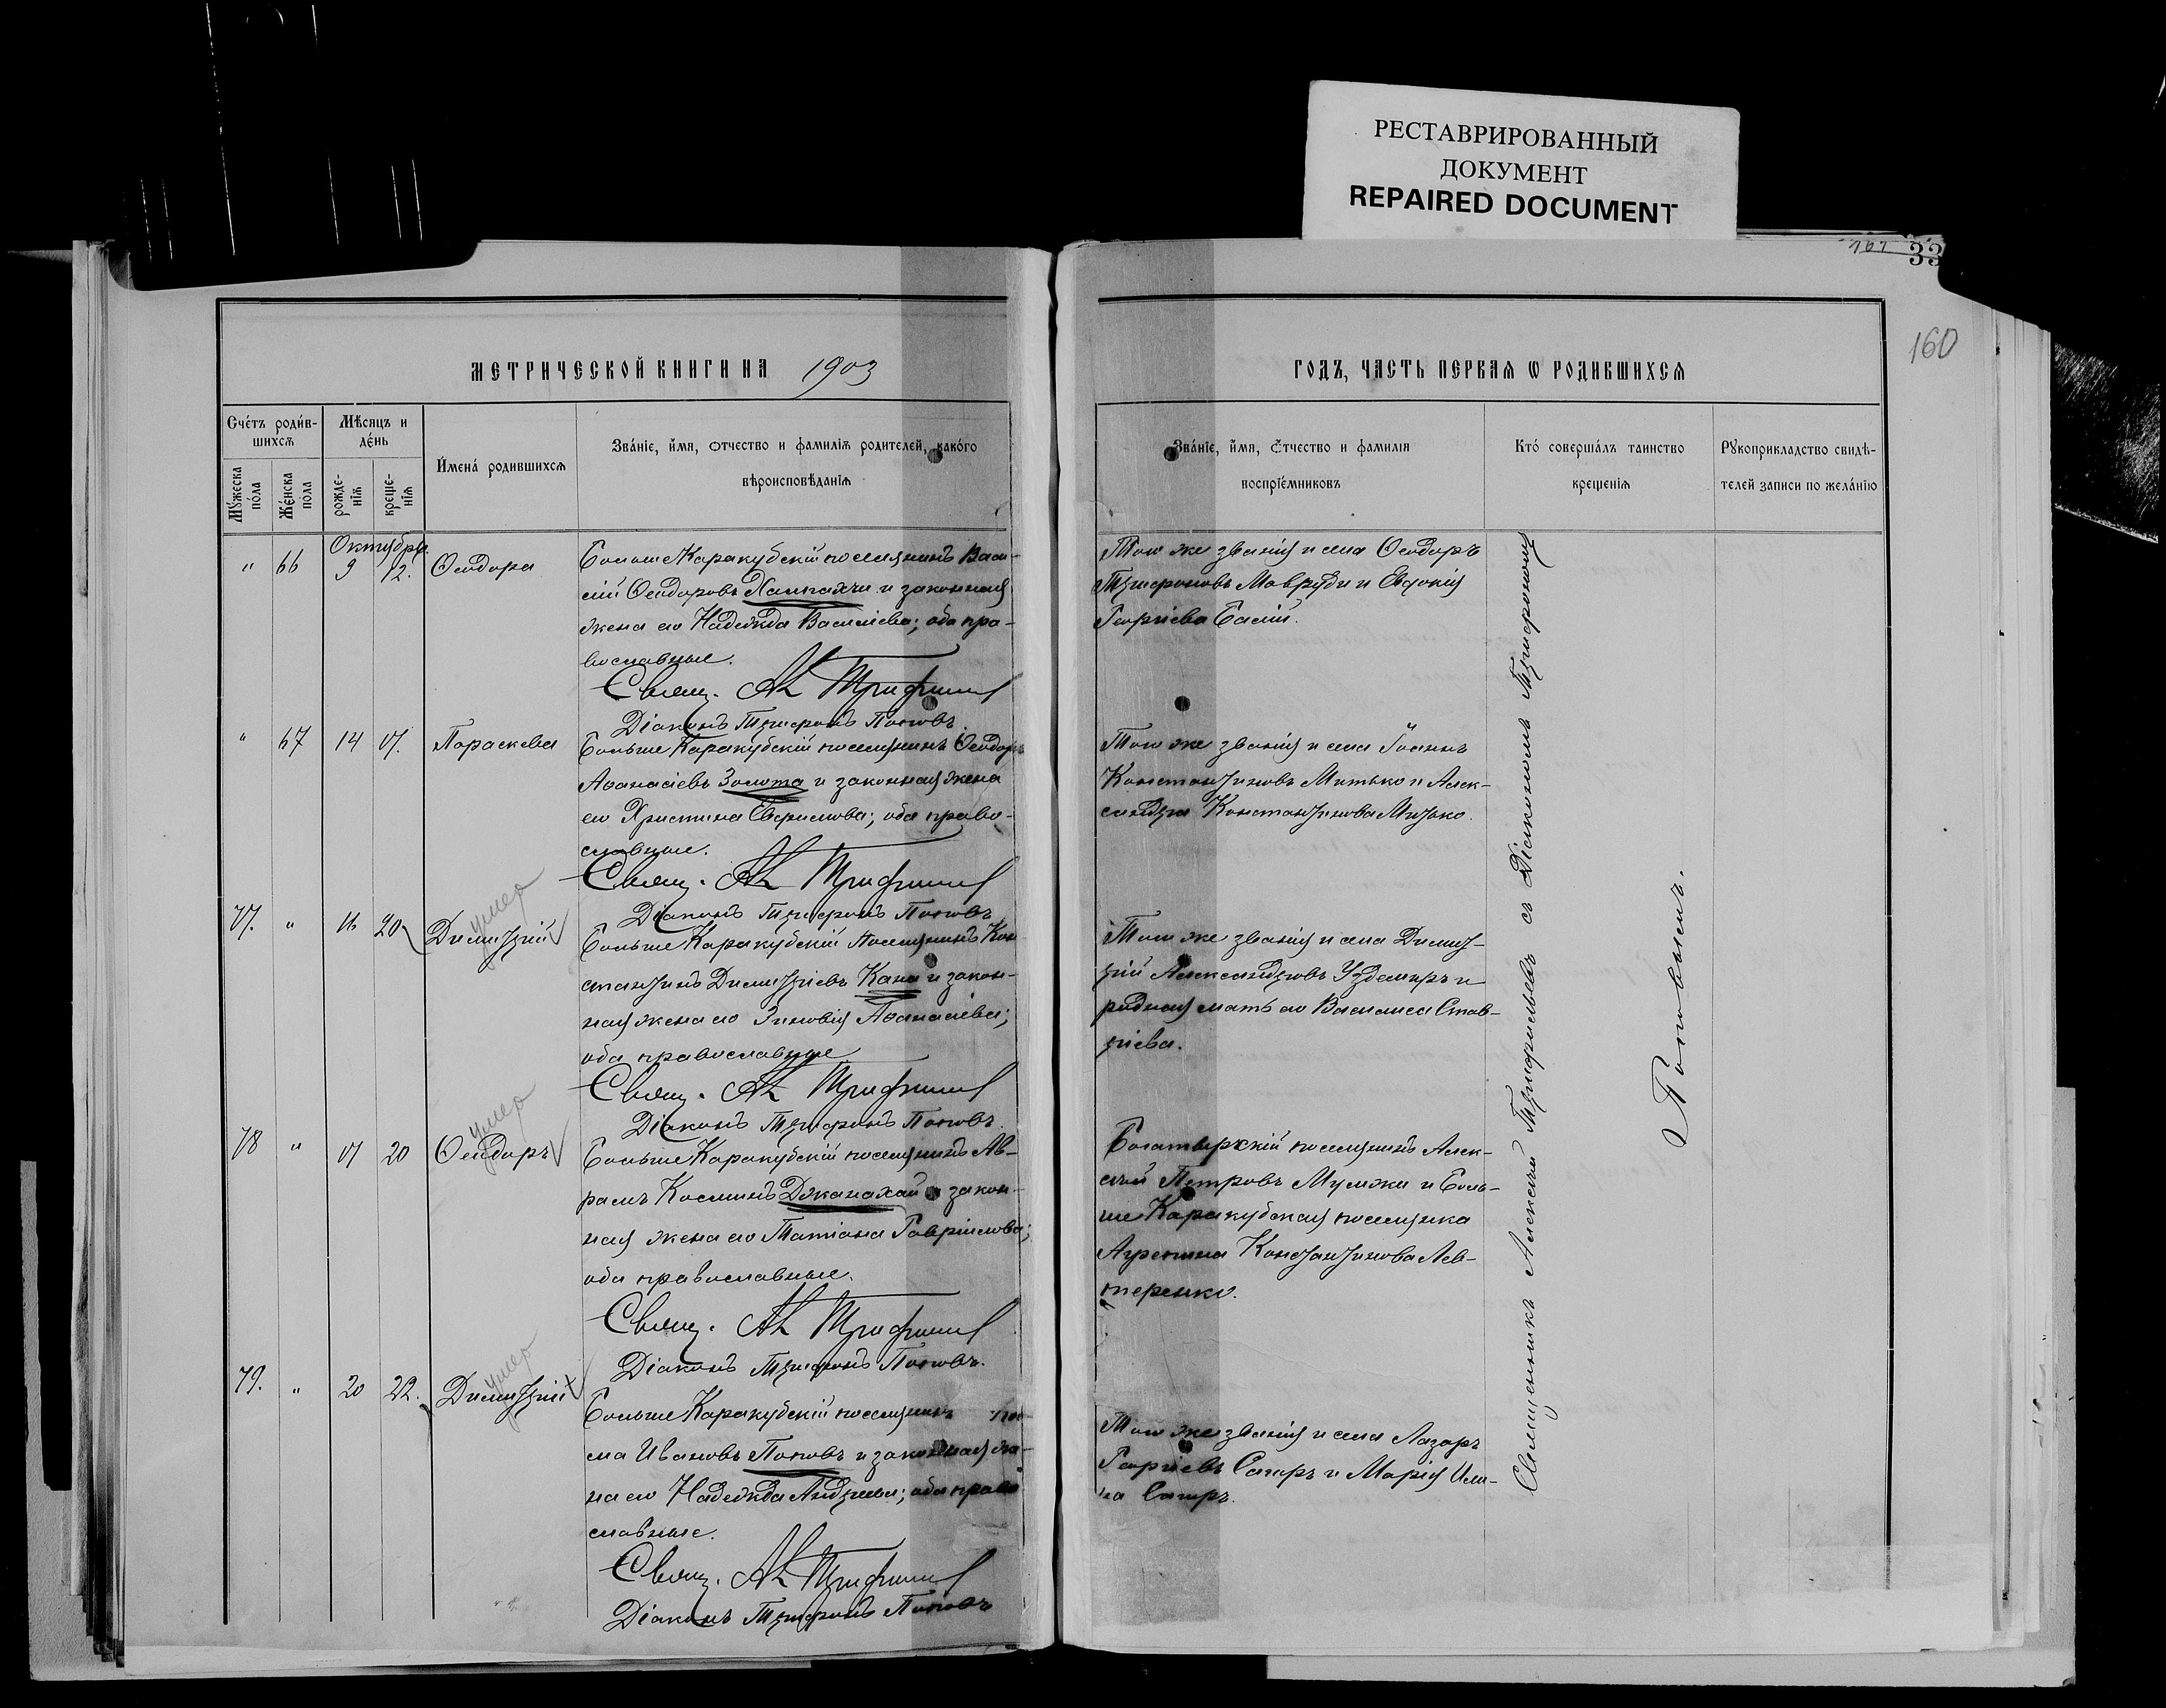 РЕСТАВРИРОВАННЫЙ
ДОКУМЕНТ
REPAIRED DOCUMENT
161 33
160
МЕТРИЧЕСКОЙ КНИГИ НА 1903
ГОДЪ, ЧАСТЬ ПЕРВАЯ Ѡ РОДИВШИХСЯ
Счетъ родив-
шихся
Мѣсяцъ и
день
Мужеска
пола
Женска
пола
рожде-
нія
креще-
нія
Имена родившихся
Званіе, имя, отчество и фамилія родителей, какого
вѣроисповѣданія
Званіе, имя, отчество и фамилія
воспріемниковъ
Кто совершалъ таинство
крещенія
Рукоприкладство свидѣ-
телей записи по желанію
Октября
" 66 9 12. Ѳеодора
Больше Каракубскій поселянинъ Васи-
лій Ѳеодоровъ и законная
жена его Надежда Василіева; оба пра-
вославные.
Свящ. Ал Трифилиев
Діаконъ Трифонъ Поповъ.
Того же званія и села Ѳеодоръ
Трифоновъ Мавроди и Евдокія
Георгіева Басій.
" 67 14 17. Параскева
Больше Каракубскій поселянинъ Ѳеодоръ
Аѳанасіевъ Золота и законная жена
его Христина Ефремова; оба право-
славные.
Свящ. Ал Трифилиев
Діаконъ Трифонъ Поповъ
Того же званія и села Іоаннъ
Константиновъ Митько и Алек-
сандра Константинова Митько.
77. " 16 20 Димитрій
умер
Больше Каракубскій поселянинъ Кон-
стантинъ Димитріевъ Кана и закон-
ная жена его Зиновія Аѳанасіева;
оба православные
Свящ. Ал Трифилиев
Діаконъ Трифонъ Поповъ.
Того же званія и села Димит-
рій Александровъ Уздемиръ и
родная мать его Василиса Став-
ріева.
78 " 17 20 Ѳеодоръ
умер
Больше Каракубскій поселянинъ Ав-
рамъ Косминъ Джанахай и закон-
ная жена его Татіана Гавріилова;
оба православные.
Свящ. Ал Трифилиев
Діаконъ Трифонъ Поповъ.
Богатырскій поселянинъ Алек-
сѣй Петровъ и Боль-
ше Каракубская поселянка
Агрепина Константинова Лев-
теренко.
79. " 20 22. Димитрій
умер
Больше Каракубскій поселянинъ
ма Ивановъ Поповъ и законная же-
на его Надежда Андреева; оба право
славные.
Свящ. Ал Трифилиев
Діаконъ Трифонъ Поповъ
Того же званія и села Лазарь
Георгіевъ Сагиръ и Марія Или-
на Сагиръ.
Священникъ Алексѣй Трифильевъ съ Діакономъ Трифономъ
Поповымъ.